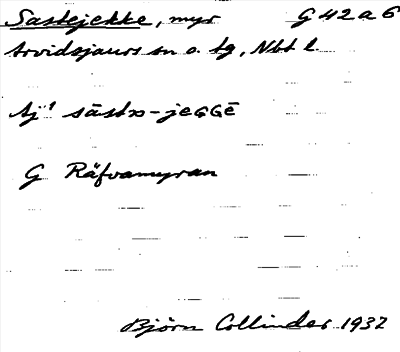 Sastejekke, myr G 42 a 6
Arvidsjaurs sn o. tg, Nbt l.
sāstᴐ-jeGGē
G Räfvamyran
Björn Collinder 1932